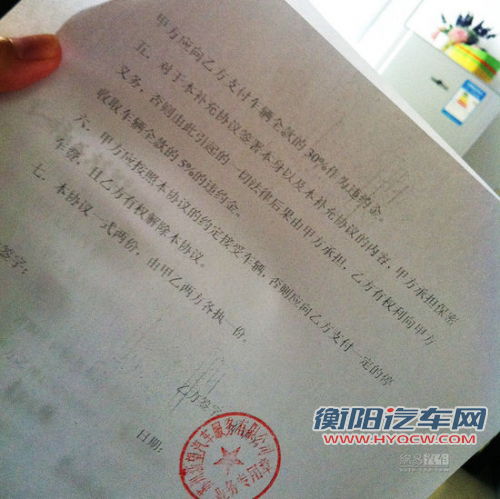 甲方应向乙方支付车辆全款的30%作为违约金。
五、对于本补充协议签署本身以及本补充协议的内容，甲方承担保密
义务，否则由此引起的一切法律后果由甲方承担，乙方有权利向甲方
收取车辆全款的5%的违约金。
六、甲方应按照本协议的约定接受车辆，否则应向乙方支付一定的停
车费，且乙方有权解除本协议。
七、本协议一式两份，由甲乙两方各执一份。
签字：
乙方签字
日期：
汽车服务有限公司
业务专用章
衡阳汽车网
WWW.HYQCW.COM